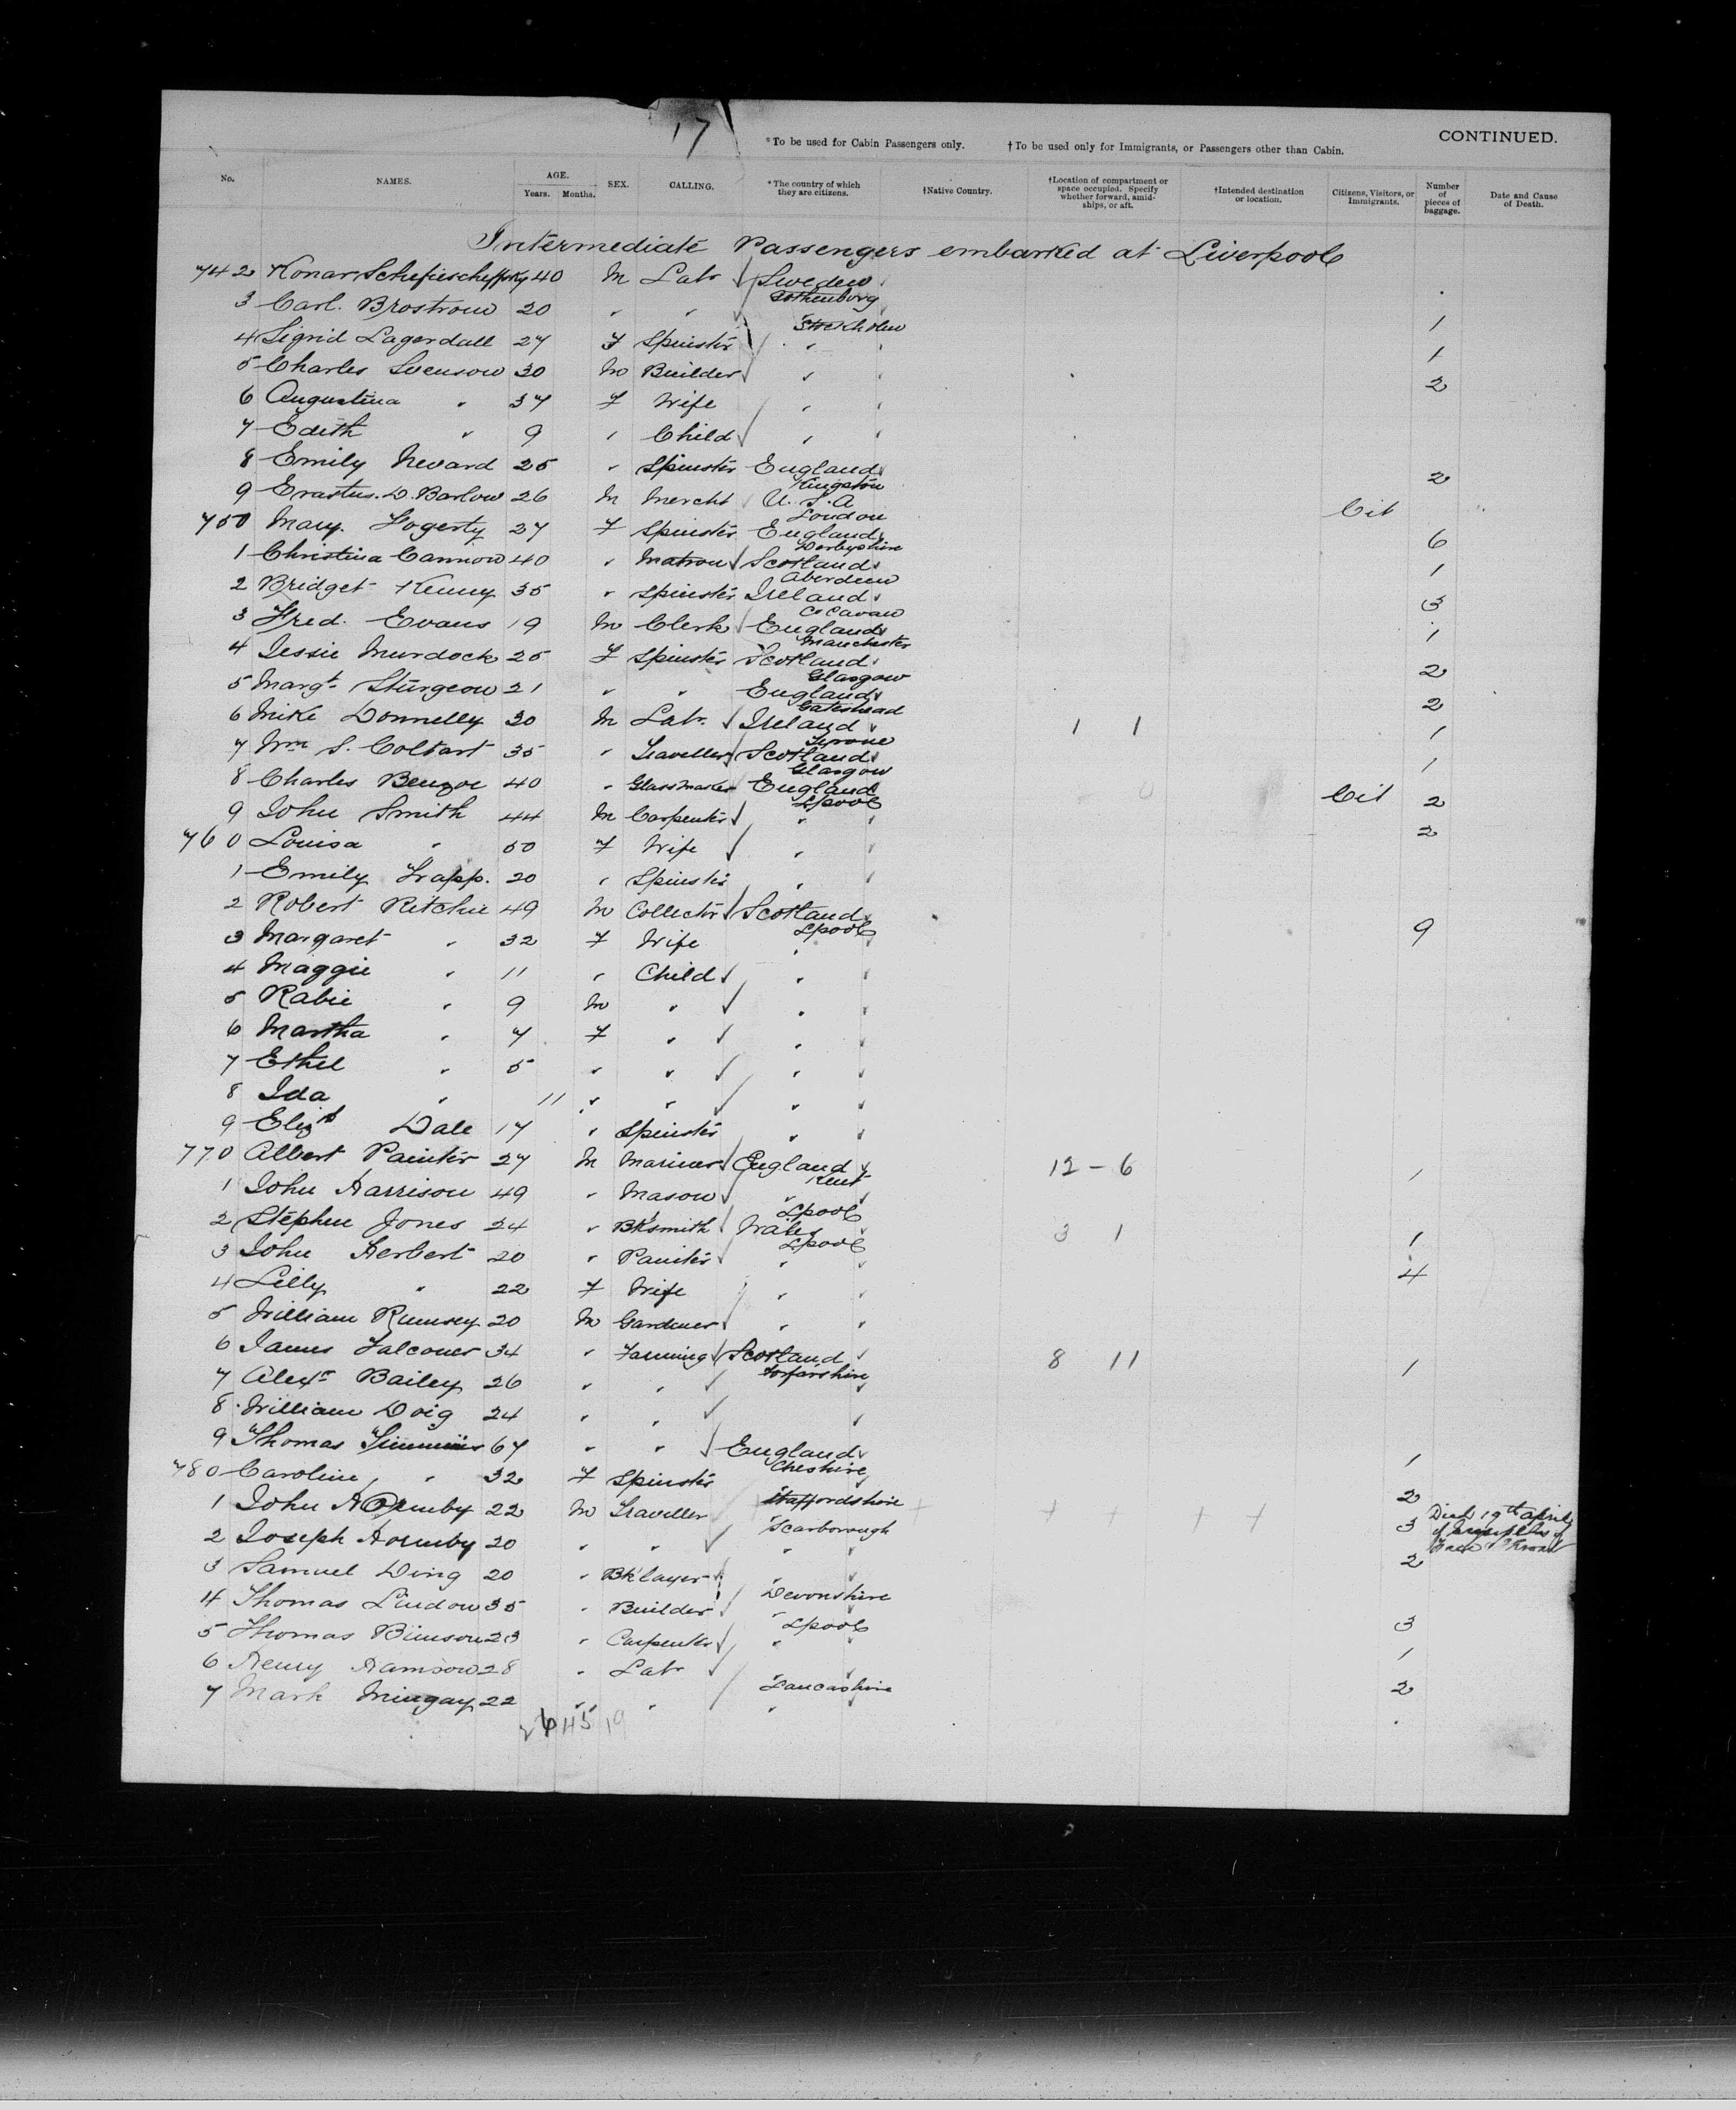 17
*To be used for Cabin Passengers only. †To be used only for Immigrants, or Passengers other than Cabin. CONTINUED.
No. NAMES. AGE. Years. Months. SEX. CALLING. *The country of which they are citizens. †Native Country. †Location of compartment or space occupied. Specify whether forward, amidships, or aft. †Intended destination or location. Citizens, Visitors, or Immigrants. Number of pieces of baggage. Date and Cause of Death.
Intermediate Passengers embarked at Liverpool
742 40 M Labr Sweden
Gothenburg
3 Carl. Brostrom 20 " "
Stockholm 1
4 Sigrid Lagerdall 27 F Spinster " 1
5 Charles Svenson 30 M Builder " 2
6 Augustina " 37 F Wife "
7 Edith " 9 " Child "
8 Emily Nevard 25 " Spinster England 2
Kingston
9 Erastus. D. Barlow 26 M Mercht U.S.A Cit
London
750 Mary Fogerty 27 F Spinster England 6
Derbyshire
1 Christina Cannon 40 " Matron Scotland 1
Aberdeen
2 Bridget Kenny 35 " Spinster Ireland 3
Co Cavan
3 Fred. Evans 19 M Clerk England 1
Manchester
4 Jessie Murdock 25 F Spinster Scotland 2
Glasgow
5 Margt Sturgeon 21 " " England 2
Gateshead
6 Mike Donnelly 30 M Labr. Ireland 1 1 1
Tyrone
7 Wm S. Coltart 35 " Traveller Scotland 1
Glasgow
8 Charles 40 " England Cit 2
Lpool
9 John Smith 44 M Carpenter " 2
760 Louisa " 50 F Wife "
1 Emily Trapp. 20 " Spinster "
2 Robert Ritchie 49 M Collector Scotland 9
Lpool
3 Margaret " 32 F Wife "
4 Maggie " 11 " Child "
5 Rabie " 9 M " "
6 Martha " 7 F " "
7 Ethel " 5 " " "
8 Ida " 11 " " "
9 Elizth Dale 17 " Spinster "
770 Albert Painter 27 M Mariner England 12 - 6 1
Kent
1 John Harrison 49 " Mason "
Lpool
2 Stephen Jones 24 " Bksmith Wales 3 1 1
Lpool
3 John Herbert 20 " Painter " 4
4 Lilly " 22 F Wife "
5 William Rumsey 20 M Gardener "
6 James Falconer 34 " Farming Scotland 8 11 1
Forfarshire
7 Alexr Bailey 26 " "
8 William Doig 24 " "
9 Thomas Timmins 67 " " England 1
Cheshire
780 Caroline " 32 F Spinster 2
Staffordshire
1 John Hornby 22 M Traveller " 3 Died 19th April
Scarborough of
2 Joseph Hornby 20 " " " 2
3 Samuel Ding 20 " Bklayer "
Devonshire
4 Thomas Lindow 35 " Builder " 3
Lpool
5 Thomas Binson 23 " Carpenter " 1
6 Henry Hamson 28 " Labr " 2
Lancashire
7 Mark Mingay 22 " " "